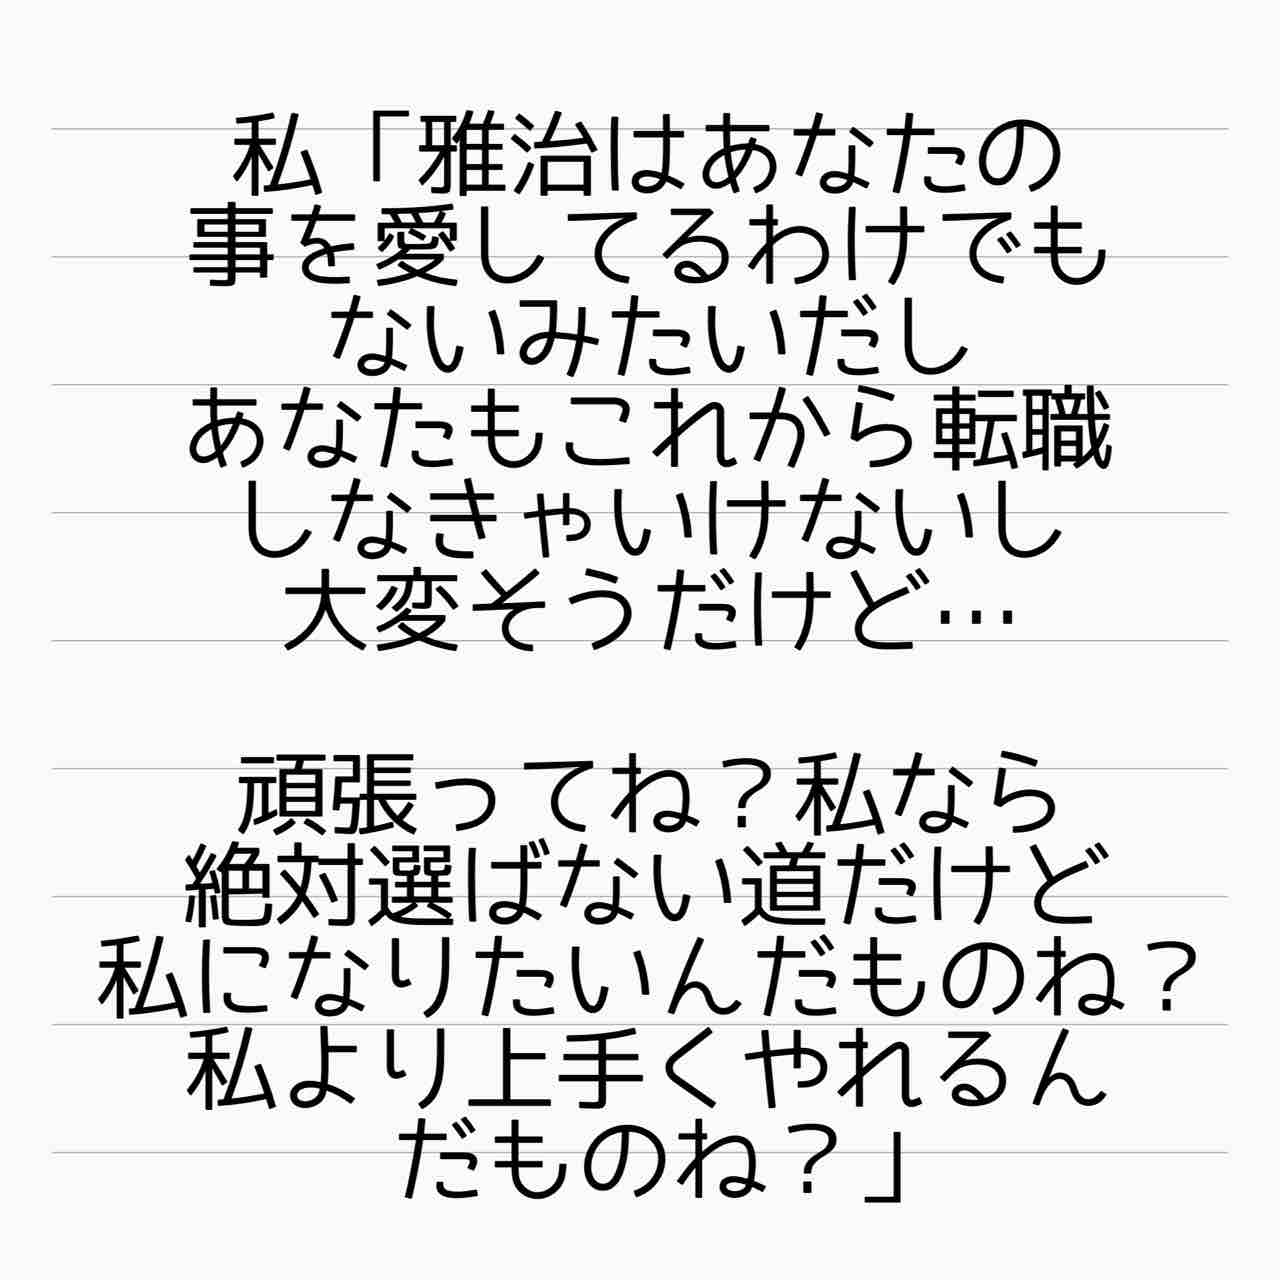 私「雅治はあなたの
事を愛してるわけでも
ないみたいだし
あなたもこれから転職
しなきゃいけないし
大変そうだけど…
頑張ってね？私なら
絶対選ばない道だけど
私になりたいんだものね？
私より上手くやれるん
だものね？」